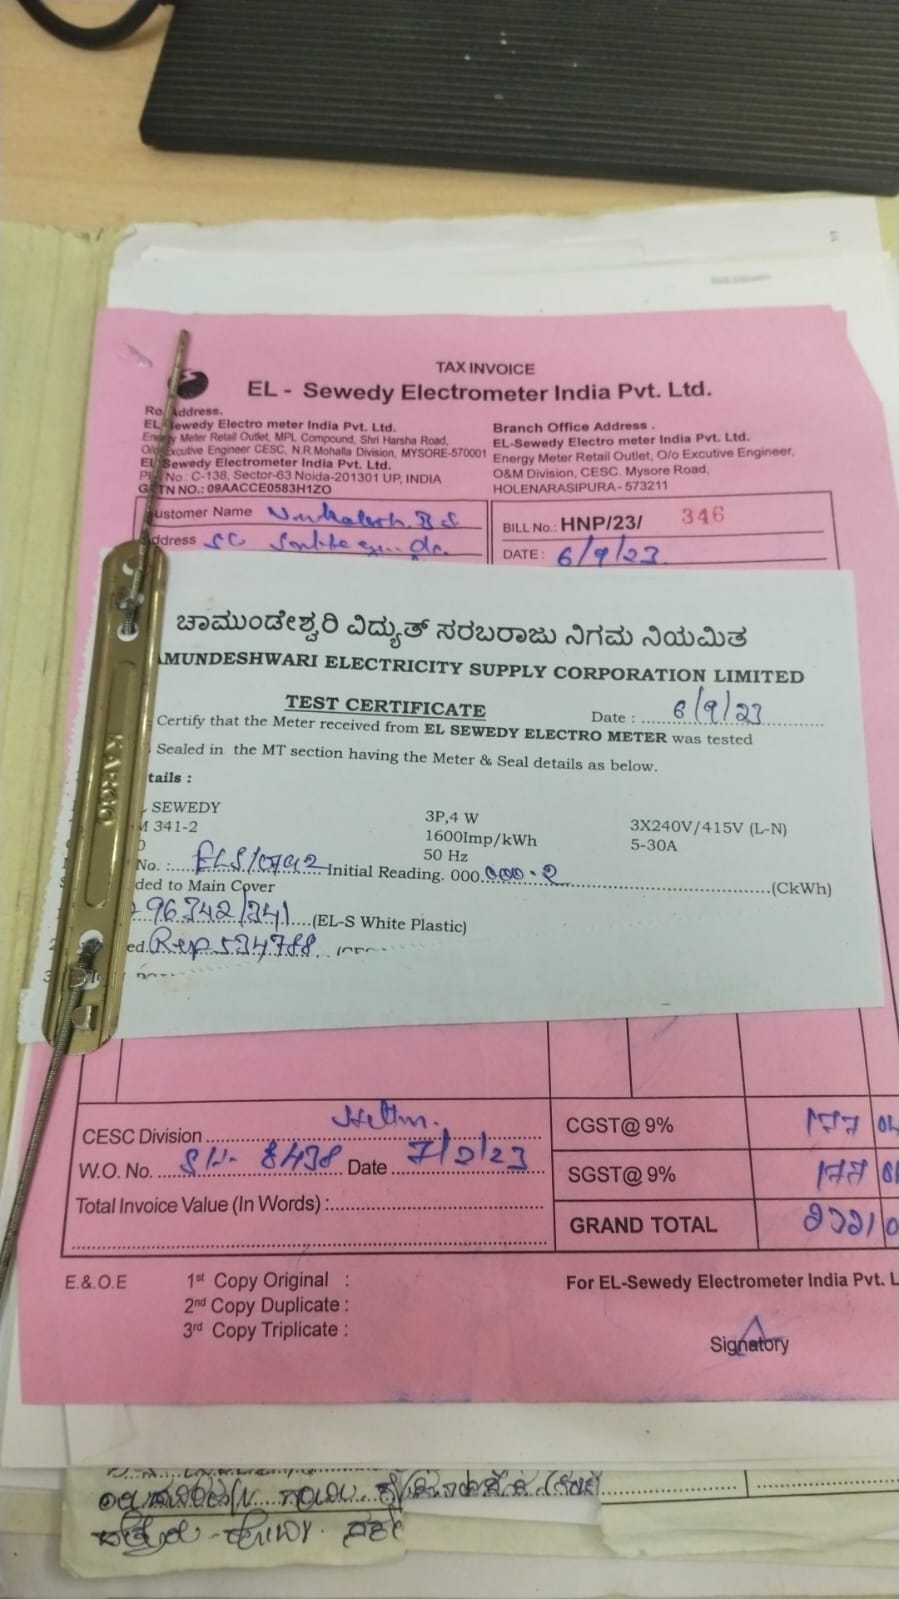 TAX INVOICE
EL - Sewedy Electrometer India Pvt. Ltd.
Address.
Sewedy Electro meter India Pvt. Ltd.
Meter Retail Outlet, MPL Compound, Shri Harsha Road,
Excutive Engineer CESC, N.R.Mohalla Division, MYSORE-570001
EL Sewedy Electrometer India Pvt. Ltd.
No: C-138, Sector-63 Noida-201301 UP, INDIA
NO.: 09AACCE0583H1ZO
Branch Office Address .
EL-Sewedy Electro meter India Pvt. Ltd.
Energy Meter Retail Outlet, O/o Excutive Engineer,
O&M Division, CESC. Mysore Road,
HOLENARASIPURA - 573211
ustomer Name
ddress
BILL No.: HNP/23/ 346
DATE : 6/9/23
ಚಾಮುಂಡೇಶ್ವರಿ ವಿದ್ಯುತ್ ಸರಬರಾಜು ನಿಗಮ ನಿಯಮಿತ
MUNDESHWARI ELECTRICITY SUPPLY CORPORATION LIMITED
TEST CERTIFICATE Date : 6/9/23
Certify that the Meter received from EL SEWEDY ELECTRO METER was tested
Sealed in the MT section having the Meter & Seal details as below.
tails :
SEWEDY 3P,4 W 3X240V/415V (L-N)
341-2 1600Imp/kWh 5-30A
50 Hz
No. : Initial Reading. 000 000.2 (CkWh)
ded to Main Cover
96342/341 (EL-S White Plastic)
ed. 534788
CESC Division
W.O. No. 8438 Date 7/2/23
Total Invoice Value (In Words) :
CGST@ 9% 177
SGST@ 9% 177
GRAND TOTAL
E.& O.E 1st Copy Original :
2nd Copy Duplicate :
3rd Copy Triplicate :
For EL-Sewedy Electrometer India Pvt. L
Signatory
KARGO